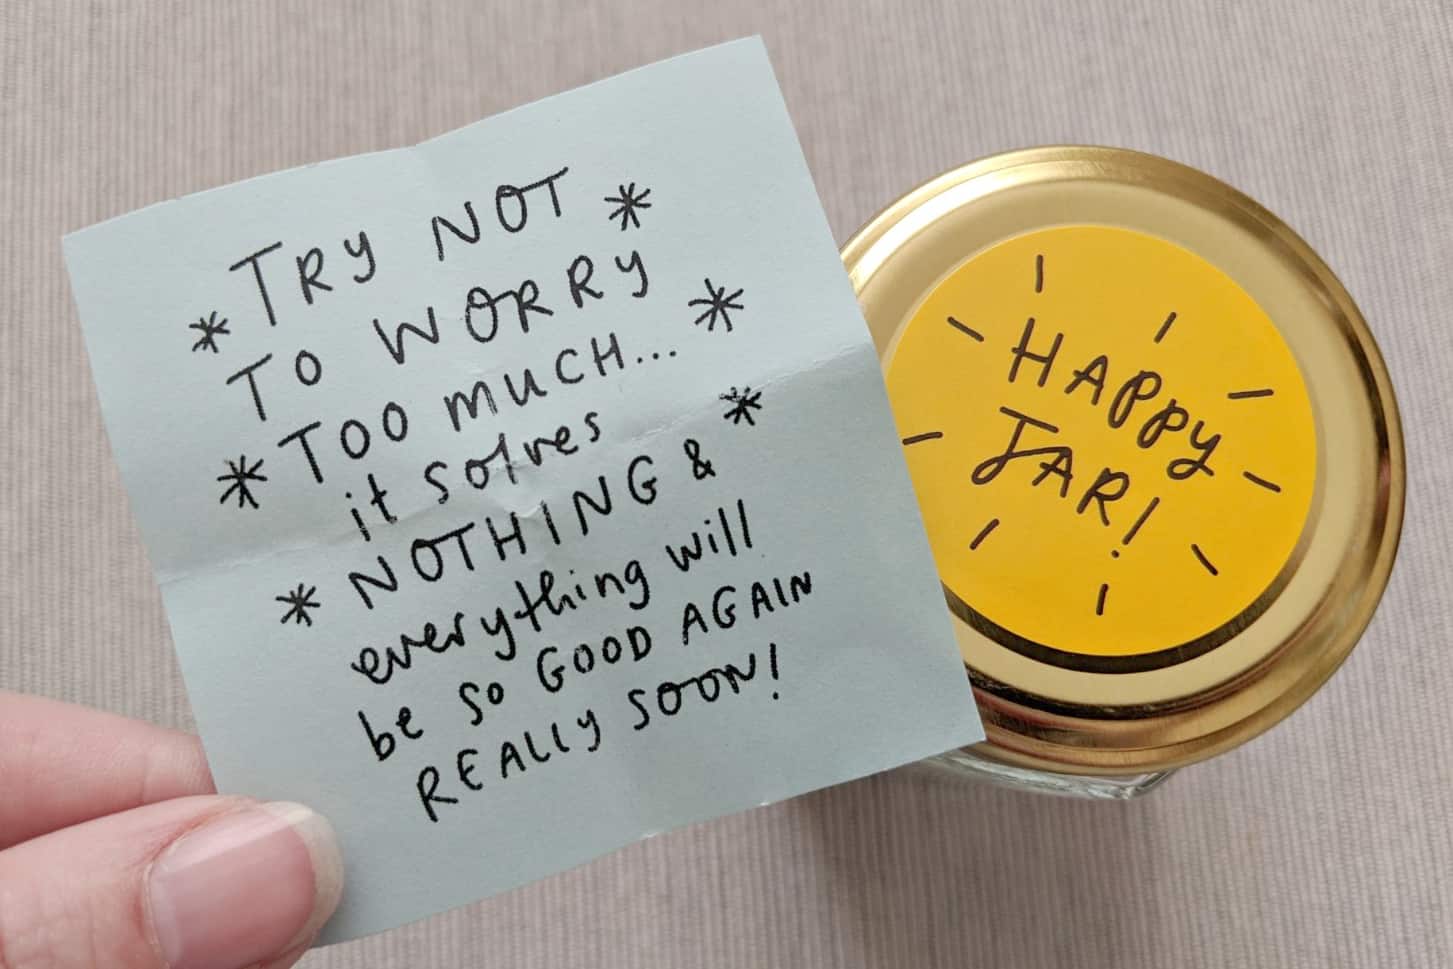 * TRY NOT *
TO WORRY
* TOO MUCH... *
it solves *
* NOTHING &
everything will
be so GOOD AGAIN
REALLY SOON!
HAPPY
JAR!